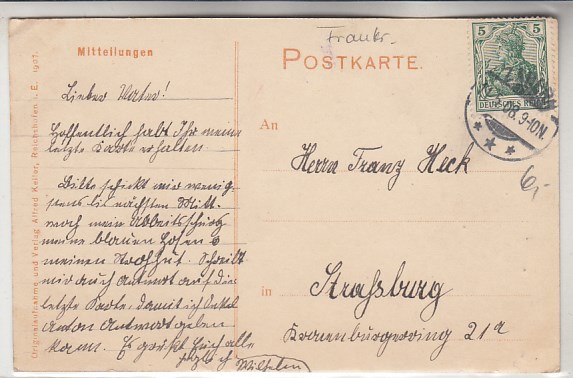 Mitteilungen
Lieber Vater!
Hoffentlich habt Ihr meine
letzte Karte erhalten.
Bitte schickt mir wenig-
stens bis nächsten Mitt-
woch mein Arbeitsschurz
meine blauen Hosen &
meinen Strohhut. Schreibt
mir auch Antwort auf die
letzte Karte, damit ich Onkel
Anton Antwort geben
kann. Es grüßt Euch alle
Wilhelm
Originalaufnahme und Verlag Alfred Keller, Reichshofen i. E. 1907.
Frankr.
POSTKARTE.
5 5
DEUTSCHES REICH
08. 9-10N.
An
Herrn Franz Heck
6,-
in
Straßburg
Kronenburgerring 21a